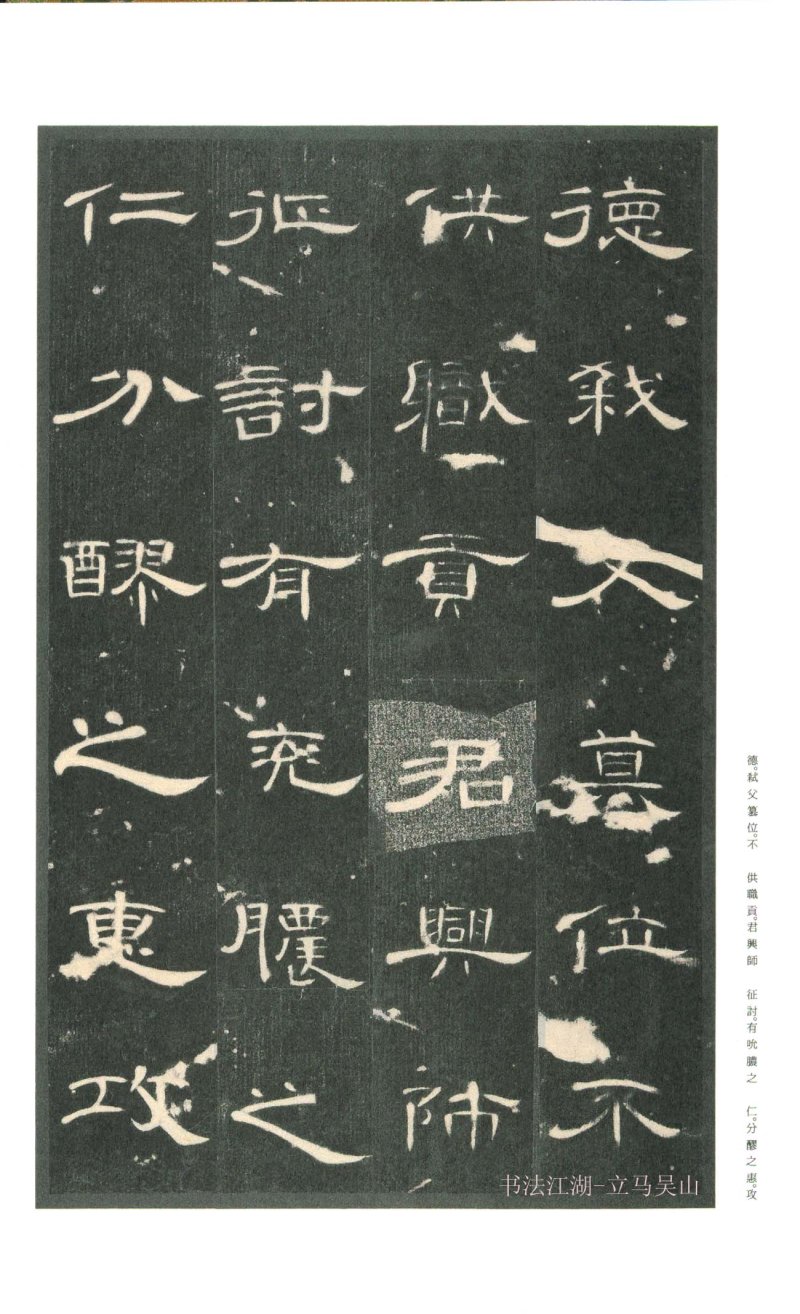 德弑父篡位不
供職貢君興師
征討有兖膿之
仁分醪之惠攻
德。弑父篡位。不 供職貢。君興師 征討。有吮膿之 仁。分醪之惠。攻
书法江湖-立马吴山